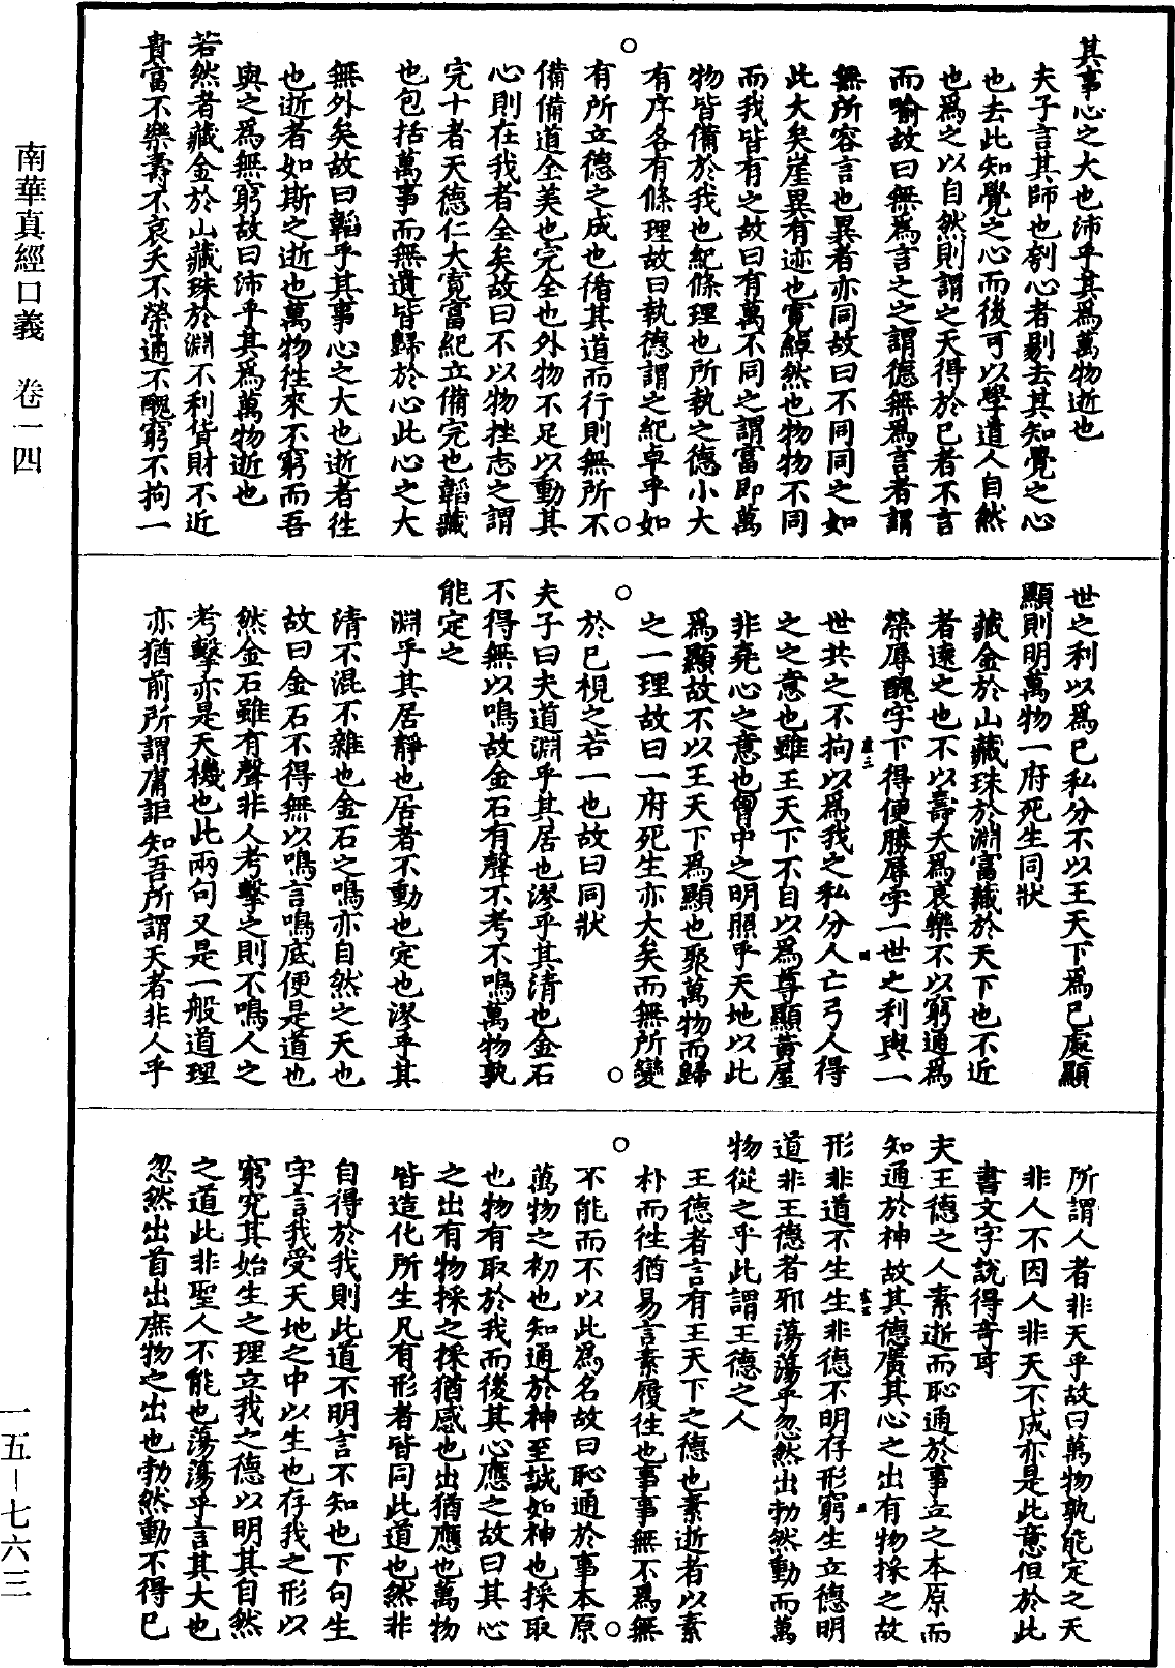 其事心之大也沛乎其為萬物逝也
夫子言其師也刳心者剔去其知覺之心
也去此知覺之心而後可以學道人自然
也為之以自然則謂之天得於己者不言
而喻故曰無為言之之謂德無為言者謂
無所容言也異者亦同故曰不同同之如
此大矣崖異有迹也寬綽然也物物不同
而我皆有之故曰有萬不同之謂富即萬
物皆備於我也紀條理也所執之德小大
有序各有條理故曰執德謂之紀卓乎如
有所立德之成也循其道而行則無所不
備備道全美也完全也外物不足以動其
心則在我者全矣故曰不以物挫志之謂
完十者天德仁大寬富紀立備完也韜藏
也包括萬事而無遺皆歸於心此心之大
無外矣故曰韜乎其事心之大也逝者往
也逝者如斯之逝也萬物往來不窮而吾
與之為無窮故曰沛乎其為萬物逝也
若然者藏金於山藏珠於淵不利貨財不近
貴富不樂壽不哀夭不榮通不醜窮不拘一
世之利以為己私分不以王天下為己處顯
顯則明萬物一府死生同狀
藏金於山藏珠於淵富藏於天下也不近
者遠之也不以壽夭為哀樂不以窮通為
榮辱醜字下得便勝辱字一世之利與一
世共之不拘以為我之私分人亡弓人得
之之意也雖王天下不自以為尊顯黃屋
非堯心之意也胷中之明照乎天地以此
為顯故不以王天下為顯也聚萬物而歸
之一理故曰一府死生亦大矣而無所變
於己視之若一也故曰同狀
夫子曰夫道淵乎其居也漻乎其清也金石
不得無以鳴故金石有聲不考不鳴萬物孰
能定之
淵乎其居靜也居者不動也定也漻乎其
清不混不雜也金石之鳴亦自然之天也
故曰金石不得無以鳴言鳴底便是道也
然金石雖有聲非人考擊之則不鳴人之
考擊亦是天機也此兩句又是一般道理
亦猶前所謂庸詎知吾所謂天者非人乎
所謂人者非天乎故曰萬物孰能定之天
非人不因人非天不成亦是此意但於此
書文字說得奇耳
夫王德之人素逝而恥通於事立之本原而
知通於神故其德廣其心之出有物採之故
形非道不生生非德不明存形窮生立德明
道非王德者邪蕩蕩乎忽然出勃然動而萬
物從之乎此謂王德之人
王德者言有王天下之德也素逝者以素
朴而往猶易言素履往也事事無不為無
不能而不以此為名故曰恥通於事本原
萬物之初也知通於神至誠如神也採取
也物有取於我而後其心應之故曰其心
之出有物採之採猶感也出猶應也萬物
皆造化所生凡有形者皆同此道也然非
自得於我則此道不明言不知也下句生
字言我受天地之中以生也存我之形以
窮究其始生之理立我之德以明其自然
之道此非聖人不能也蕩蕩乎言其大也
忽然出首出庶物之出也勃然動不得已
南華真經口義 卷一四
一五－七六三